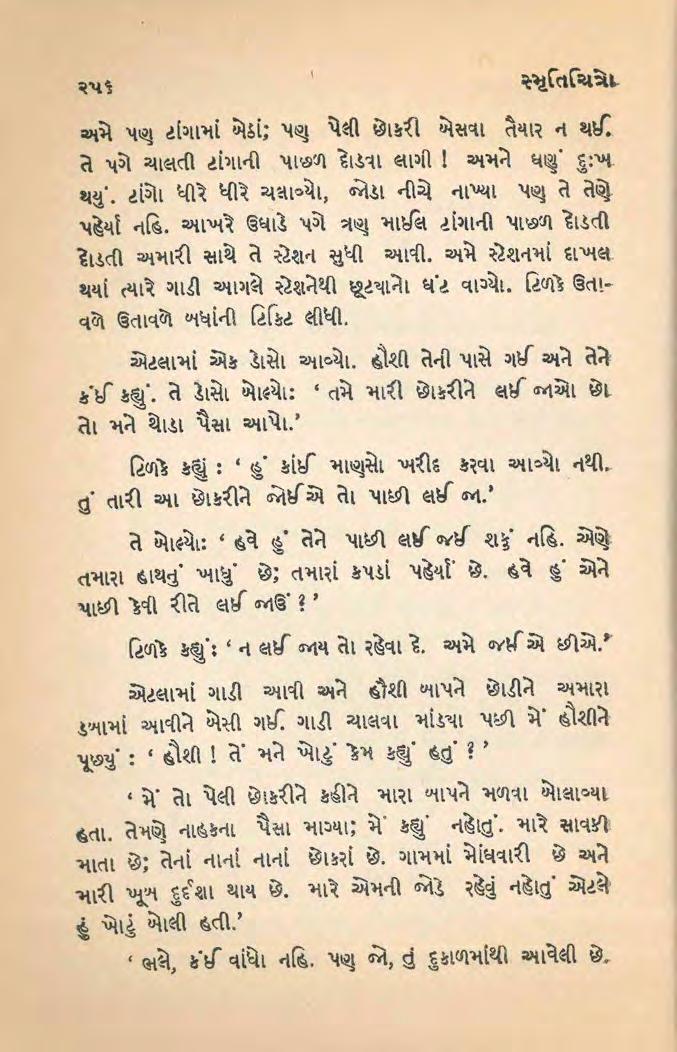 ૨૫૬
સ્મૃતિચિત્રો
અમે પણ ટાંગામાં બેઠાં; પણ પેલી છોકરી બેસવા તૈયાર ન થઈ.
તે પગે ચાલતી ટાંગાની પાછળ દોડવા લાગી ! અમને ઘણું દુઃખ
થયું. ટાંગો ધીરે ધીરે ચલાવ્યો, જોડા નીચે નાખ્યા પણ તે તેણે
પહેર્યાં નહિ. આખરે ઉઘાડે પગે ત્રણ માઈલ ટાંગાની પાછળ દોડતી
દોડતી અમારી સાથે તે સ્ટેશન સુધી આવી. અમે સ્ટેશનમાં દાખલ
થયાં ત્યારે ગાડી આગલે સ્ટેશનેથી છૂટયાનો ઘંટ વાગ્યો. ટિળકે ઉતા-
વળે ઉતાવળે બધાંની ટિકિટ લીધી.
એટલામાં એક ડોસો આવ્યો. હૌશી તેની પાસે ગઈ અને તેને
કંઈ કહ્યું. તે ડોસો બોલ્યો: ‘ તમે મારી છોકરીને લઈ જાઓ છો
તો મને થોડા પૈસા આપો.’
ટિળકે કહ્યું : ‘ હું કાંઈ માણસો ખરીદ કરવા આવ્યો નથી.
તું તારી આ છોકરીને જોઈએ તો પાછી લઈ જા.’
તે બોલ્યો: ‘ હવે હું તેને પાછી લઈ જઈ શકું નહિ. એણે
તમારા હાથનું ખાધું છે; તમારાં કપડાં પહેર્યાં છે. હવે હું એને
પાછી કેવી રીતે લઈ જાઉં ? ’
ટિળકે કહ્યું: ‘ ન લઈ જાય તો રહેવા દે. અમે જઈએ છીએ.’
એટલામાં ગાડી આવી અને હૌશી બાપને છોડીને અમારા
ડબામાં આવીને બેસી ગઈ. ગાડી ચાલવા માંડયા પછી મેં હૌશીને
પૂછયું : ‘ હૌશી ! તેં મને ખોટું કેમ કહ્યું હતું ? ’
‘ મેં તો પેલી છોકરીને કહીને મારા બાપને મળવા બોલાવ્યા
હતા. તેમણે નાહકના પૈસા માગ્યા; મેં કહ્યું નહોતું. મારે સાવકી
માતા છે; તેનાં નાનાં નાનાં છોકરાં છે. ગામમાં મોંઘવારી છે અને
મારી ખૂબ દુર્દશા થાય છે. મારે એમની જોડે રહેવું નહોતું એટલે
હું ખોટું બોલી હતી.’
‘ ભલે, કંઈ વાંધો નહિ. પણ જો, તું દુકાળમાંથી આવેલી છે.